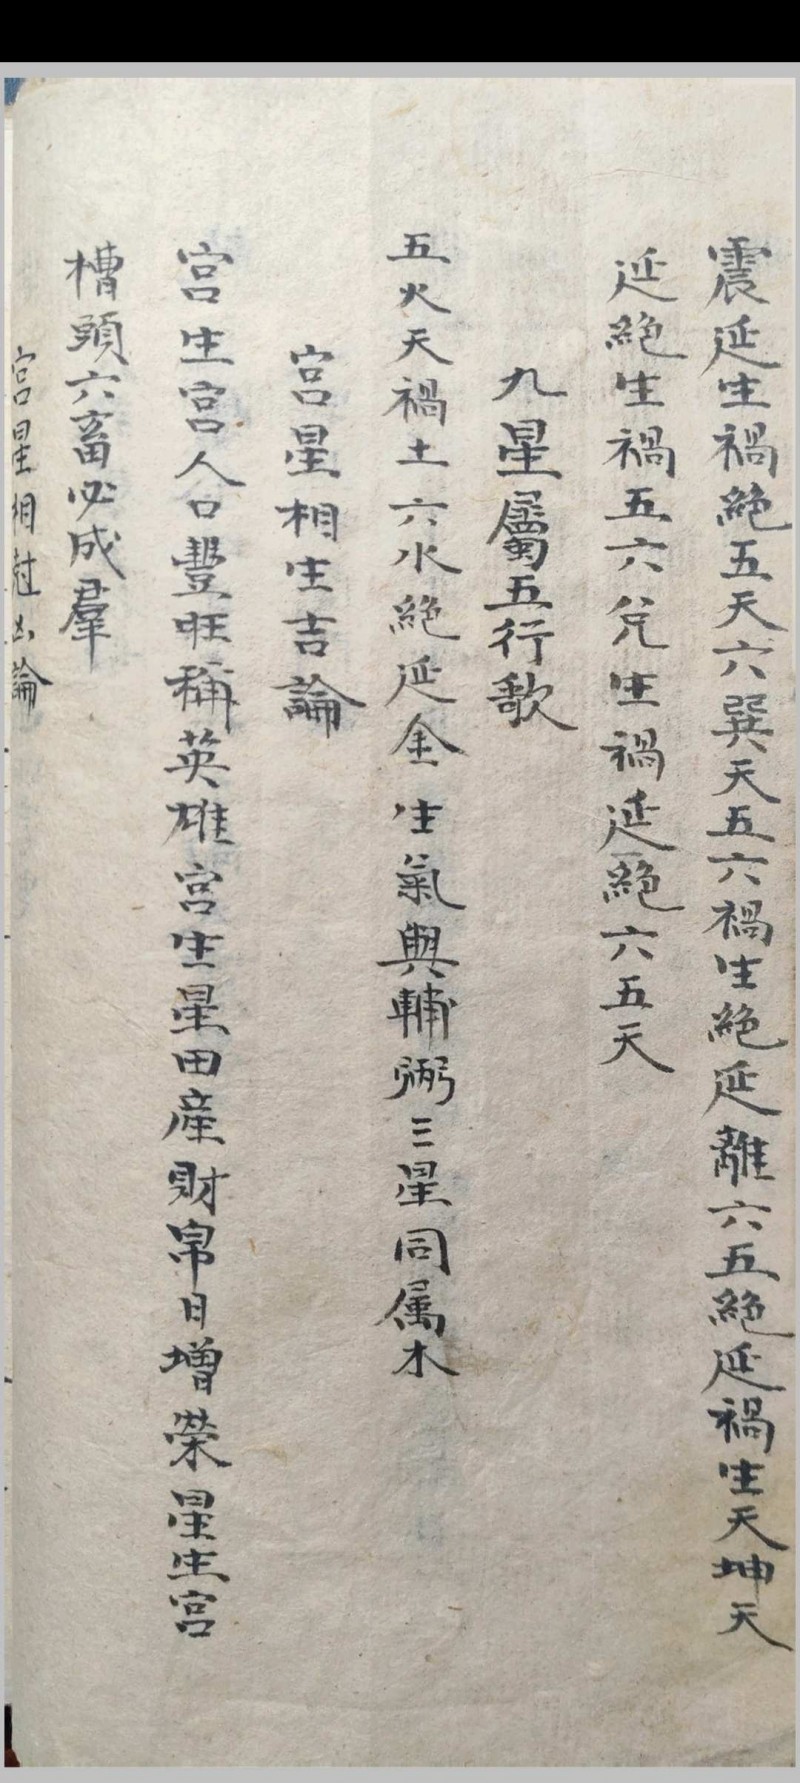 震延生禍絶五天六巽天五六禍生絶延離六五絶延禍生天坤天
延絶生禍五六兌生禍延絶六五天
九星屬五行歌
五火天禍土六水絶延金生氣與輔弼三星同属木
宮星相生吉論
宮生宮人口豐旺稱英雄宮生星田産財帛日增榮星生宮
槽頭六畜必成羣
宮星相尅凶論